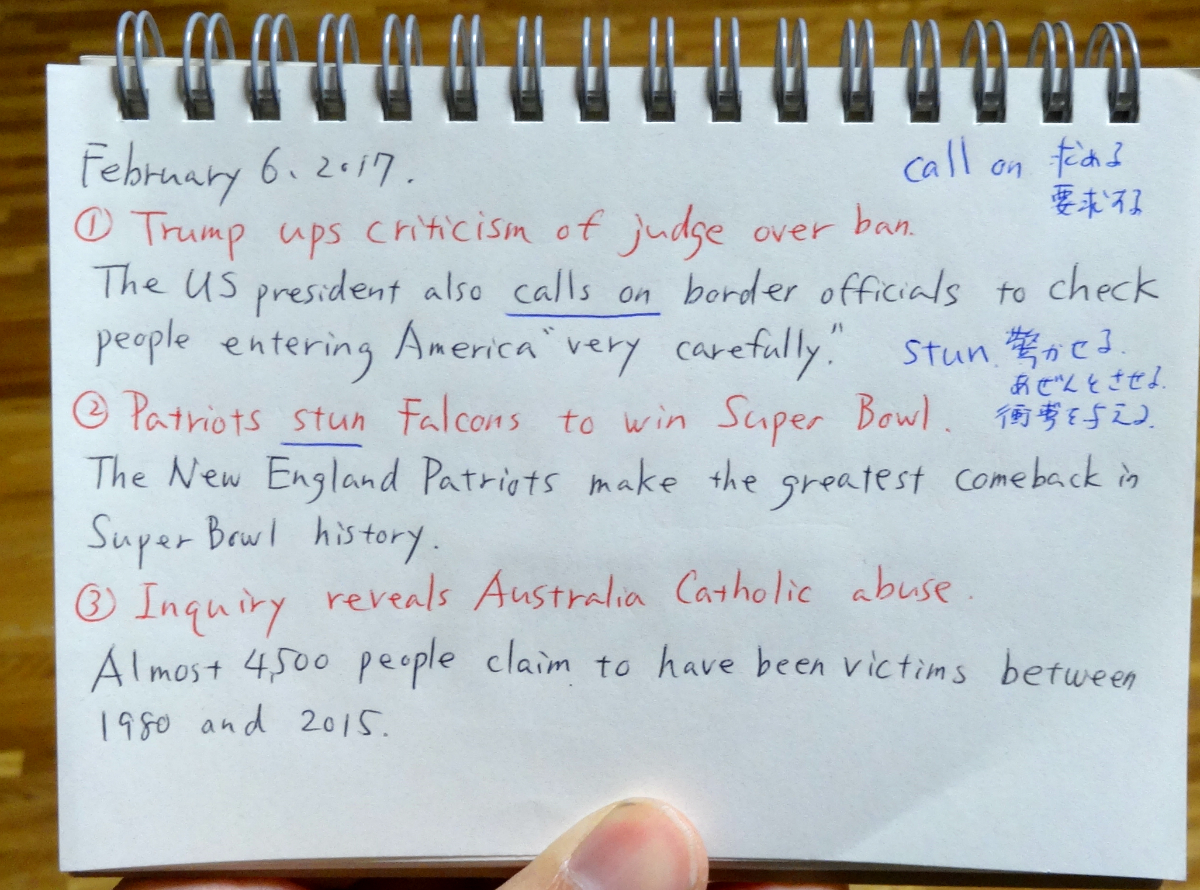 February 6、2017.
call on 求める
要求する
① Trump ups criticism of judge over ban.
The US president also calls on border officials to check
people entering America "very carefully."
stun 驚かせる.
あぜんとさせる.
② Patriots stun Falcons to win Super Bowl.
衝撃を与える.
The New England Patriots make the greatest comeback in
Super Bowl history.
③ Inquiry reveals Australia Catholic abuse.
Almost 4,500 people claim to have been victims between
1980 and 2015.